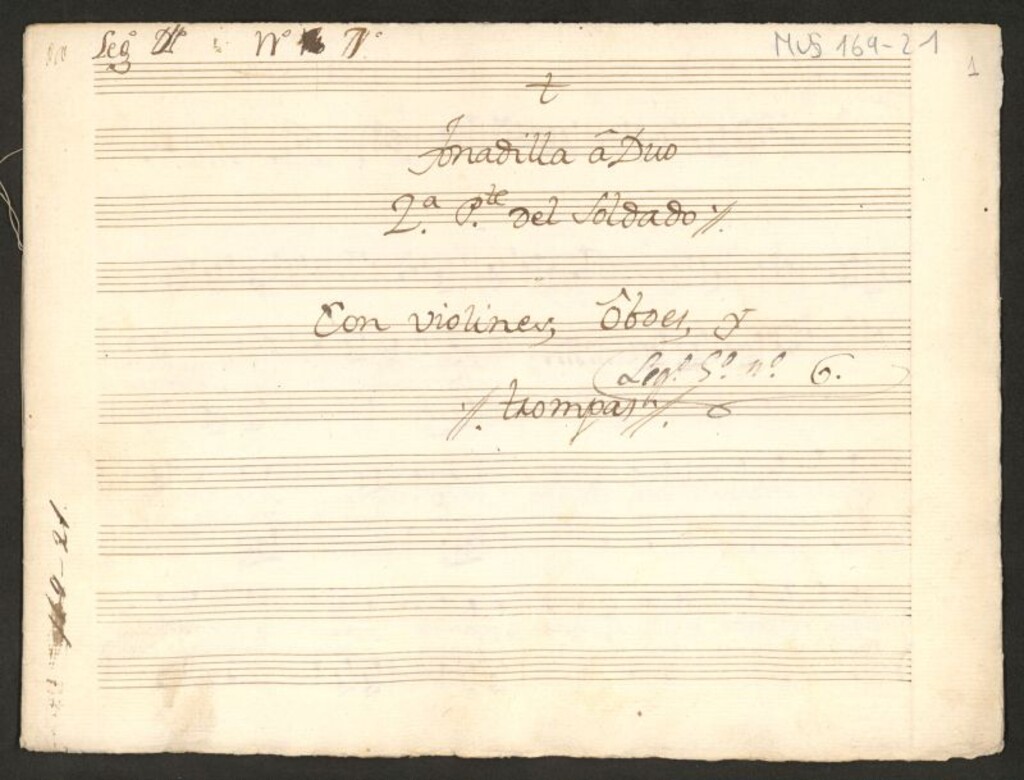 Leg.º Nº
MUS 169-21
1
t
Tonadilla â Duo
2.ª P.te del Soldado //.
Con violines, Oboes, y
Leg.º 5.º n.º 6.
//. trompas //.
169-21.